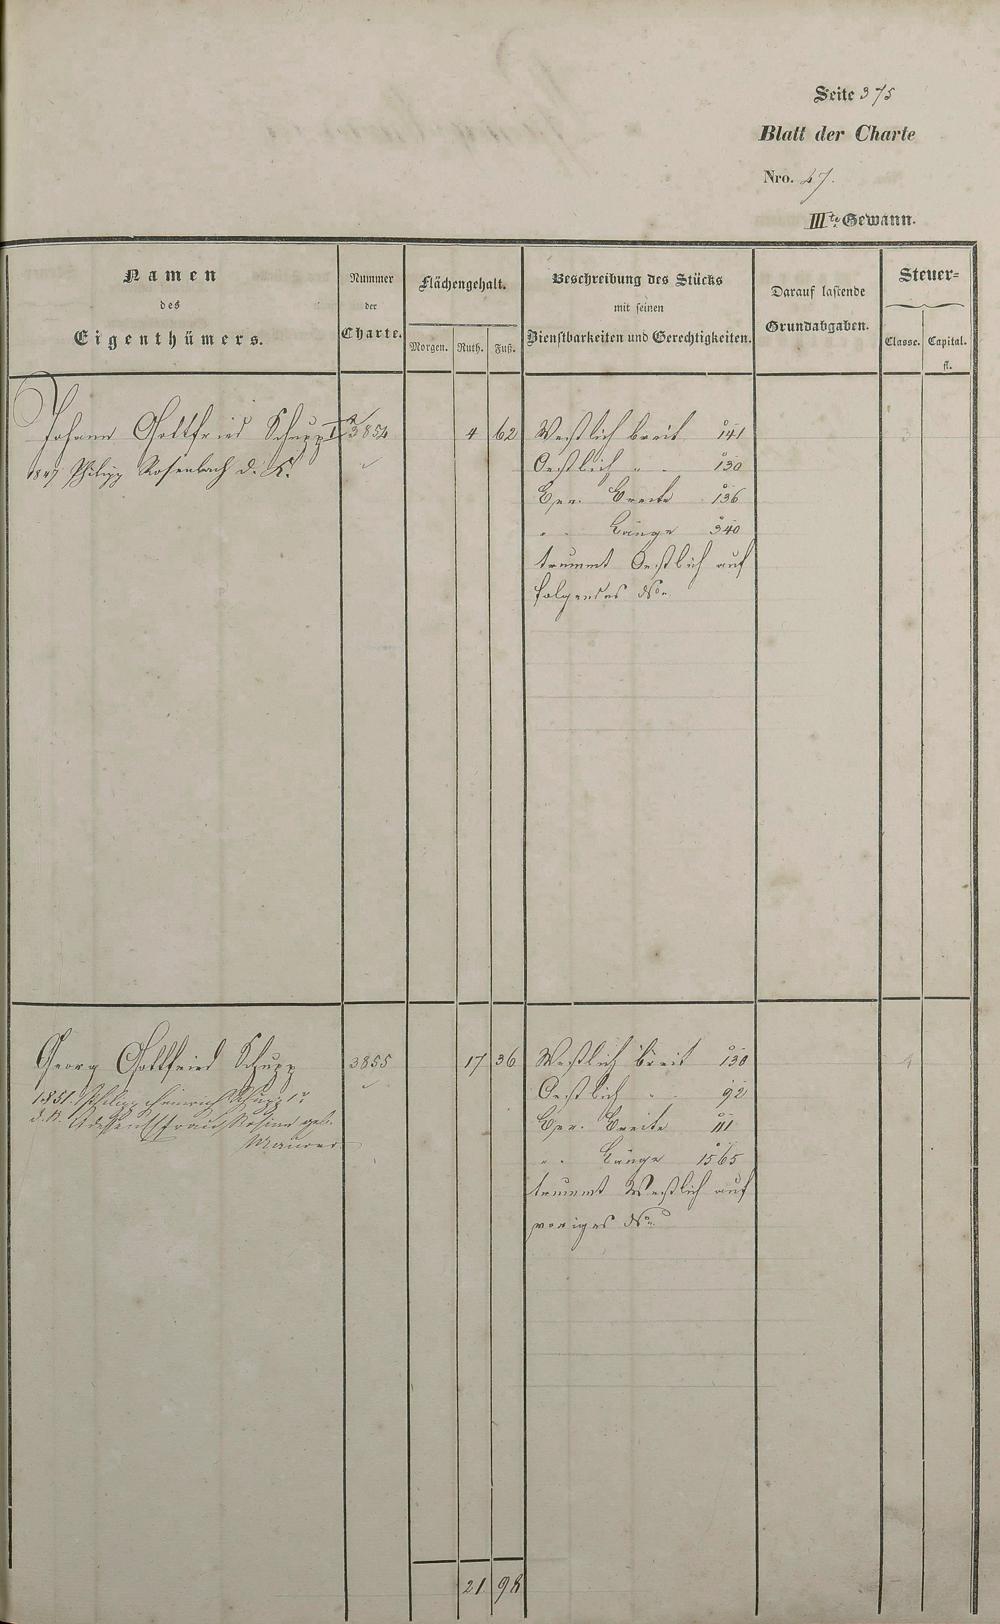 Seite 375
Blatt der Charte
Nro. 47.
IIIte Gewann.
Namen
des
Eigenthümers.
Nummer
der
Charte.
Flächengehalt.
Morgen. Ruth. Fuß.
Beschreibung des Stücks
mit seinen
Dienstbarkeiten und Gerechtigkeiten.
Darauf lastende
Grundabgaben.
Steuer-
Classe. Capital.
fl.
Johann Gottfried Schupp 3854 4 62 Westlich breit 141
1847 Philipp Rosenbach d. K. Oestlich " " 130
Ger. Breite 136
" " Länge 340
trummt Oestlich auf
folgendes No.
3
Georg Gottfried Schupp 3855 17 36 Westlich breit 130
1851. Philipp Heinrich Schupp 1r Oestlich " " 92
d. K. Adess Ehefrau, Rosine geb. Ger. Breite 111
Maurer " " Länge 1565
trummt Westlich auf
voriges No.
4
21 98